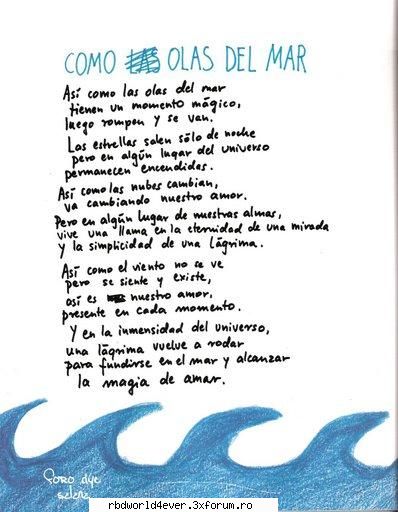 COMO OLAS DEL MAR
Así como las olas del mar
tienen un momento mágico,
luego rompen y se van.
Las estrellas salen sólo de noche
pero en algún lugar del universo
permanecen encendidas.
Así como las nubes cambian,
va cambiando nuestro amor.
Pero en algún lugar de nuestras almas,
vive una llama en la eternidad de una mirada
y la simplicidad de una lágrima.
Así como el viento no se ve
pero se siente y existe,
así es nuestro amor,
presente en cada momento.
Y en la inmensidad del universo,
una lágrima vuelve a rodar
para fundirse en el mar y alcanzar
la magia de amar.
rbdworld4ever.3xforum.ro